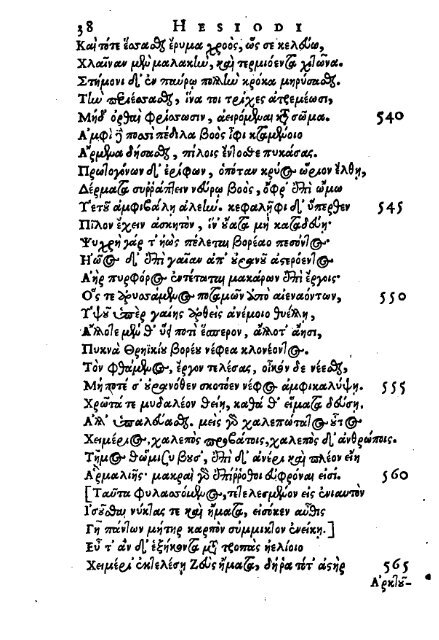 38 HESIODI
Καὶ τότε ἕσσασθαι ἔρυμα χροὸς, ὥς σε κελεύω,
Χλαῖναν μὲν μαλακὴν, καὶ τερμιόεντα χιτῶνα.
Στήμονι δ' ἐν παύρῳ πολλὴν κρόκα μηρύσασθαι.
Τὴν περιέσσασθαι, ἵνα τοι τρίχες ἀτρεμέωσι,
Μηδ' ὀρθαὶ φρίσσωσιν, ἀειρόμεναι κατὰ σῶμα. 540
Ἀμφὶ δὲ ποσσὶ πέδιλα βοὸς ἶφι κταμένοιο
Ἄρμενα δήσασθαι, πίλοις ἔντοσθε πυκάσας.
Πρωτογόνων δ' ἐρίφων, ὁπόταν κρύος ὥριον ἔλθῃ,
Δέρματα συῤῥάπτειν νεύρῳ βοὸς, ὄφρ' ἐπὶ ὤμῳ
Ὑετοῦ ἀμφιβάλῃ ἀλέην· κεφαλῆφι δ' ὕπερθεν 545
Πῖλον ἔχειν ἀσκητὸν, ἵν' οὔατα μὴ καταδεύῃ·
Ψυχρὴ γάρ τ' ἠὼς πέλεται βορέαο πεσόντος·
Ἠῷος δ' ἐπὶ γαῖαν ἀπ' οὐρανοῦ ἀστερόεντος
Ἀὴρ πυρφόρος ἐντέταται μακάρων ἐπὶ ἔργοις·
Ὅς τε ἀρυσσάμενος ποταμῶν ἀπὸ αἰεναόντων, 550
Ὑψοῦ ὑπὲρ γαίης ἀρθεὶς ἀνέμοιο θυέλλῃ,
Ἄλλοτε μὲν θ' ὕει ποτὶ ἕσπερον, ἄλλοτ' ἄησι,
Πυκνὰ Θρηϊκίου βορέου νέφεα κλονέοντος.
Τὸν φθάμενος, ἔργον τελέσας, οἶκον δε νέεσθαι,
Μή ποτέ σ' οὐρανόθεν σκοτόεν νέφος ἀμφικαλύψῃ. 555
Χρῶτά τε μυδαλέον θείη, κατά θ' εἵματα δεύσῃ.
Ἀλλ' ὑπαλεύασθαι. μεὶς γὰρ χαλεπώτατος οὗτος
Χειμέριος, χαλεπὸς προβάτοις, χαλεπὸς δ' ἀνθρώποις.
Τῆμος θὤμισυ βουσ', ἐπὶ δ' ἀνέρι καὶ πλέον εἴη
Ἁρμαλιῆς· μακραὶ γὰρ ἐπίῤῥοθοι εὐφρόναι εἰσί. 560
[Ταῦτα φυλασσόμενος, τετελεσμένον εἰς ἐνιαυτὸν
Ἰσοῦσθαι νύκτας τε καὶ ἤματα, εἰσόκεν αὖθις
Γῆ πάντων μήτηρ καρπὸν σύμμικτον ἐνείκῃ.]
Εὖτ' ἂν δ' ἑξήκοντα μετὰ τροπὰς ἠελίοιο
Χειμέρι' ἐκτελέσῃ Ζεὺς ἤματα, δή ῥα τότ' ἀστὴρ 565
Ἀρκτοῦ-